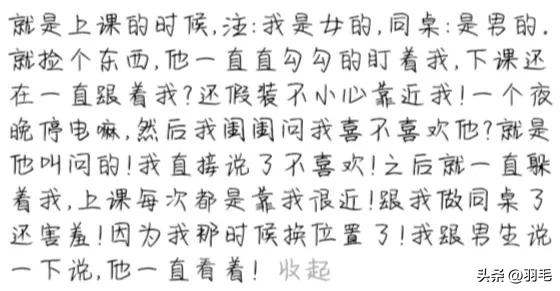 就是上课的时候,注:我是女的,同桌:是男的.
就捡个东西,他一直直勾勾的盯着我,下课还
在一直跟着我?还假装不小心靠近我!一个夜
晚停电嘛,然后我闺闺问我喜不喜欢他?就是
他叫问的!我直接说了不喜欢!之后就一直躲
着我,上课每次都是靠我很近!跟我做同桌了
还害羞!因为我那时候换位置了!我跟男生说
一下说,他一直看着! 收起
头条 @羽毛